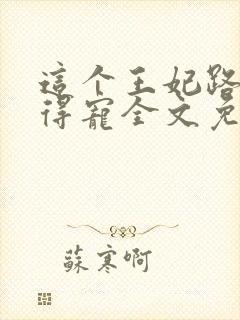 這个王妃路
得寵全文免
蘇寒啊